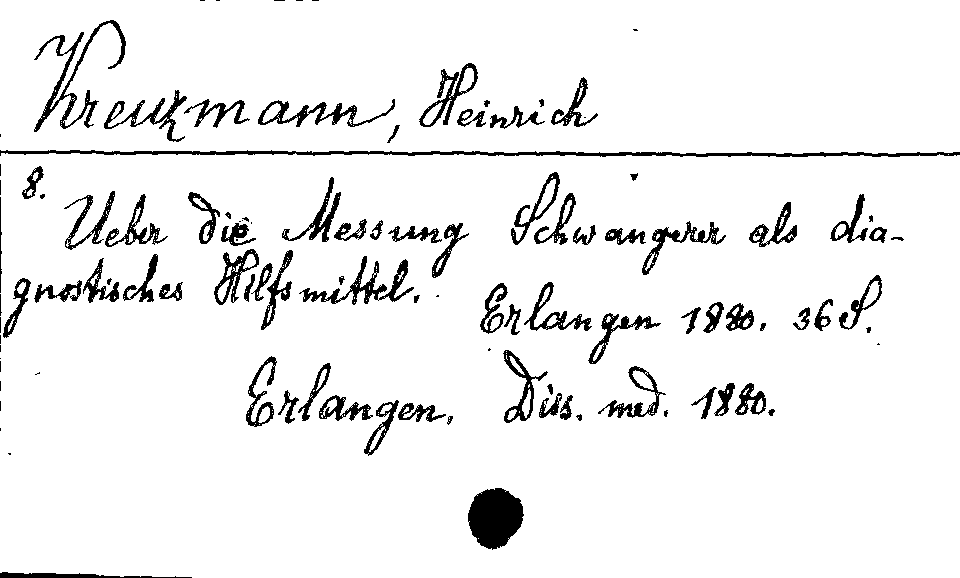 Kreuzmann, Heinrich
8.
Ueber die Messung Schwangerer als dia-
gnostisches Hilfsmittel.
Erlangen 1880. 36 S.
Erlangen. Diss. med. 1880.